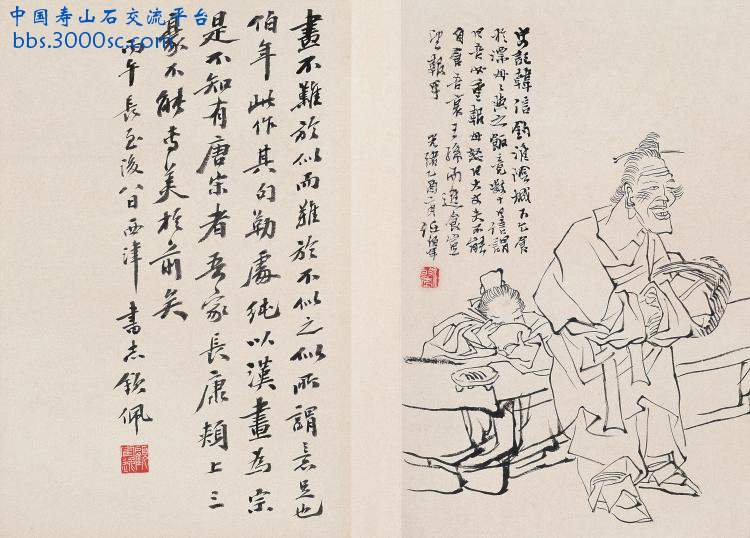 中国寿山石交流平台
bbs.3000sc.com
史記韓信釣淮陰城下乞食
於漂母〻與之飯竟數十日信謂
曰吾必重報母怒曰大丈夫不能
自食吾哀王孫而進食豈
望報乎 光緒乙酉二月任伯年
畫不難於似而難於不似之似所謂意足也
伯年此作其勾勒處純以漢畫為宗
是不知有唐宋者吾家長康頰上三
毫不能專美於前矣
丙午長至後八日西津書志欽佩